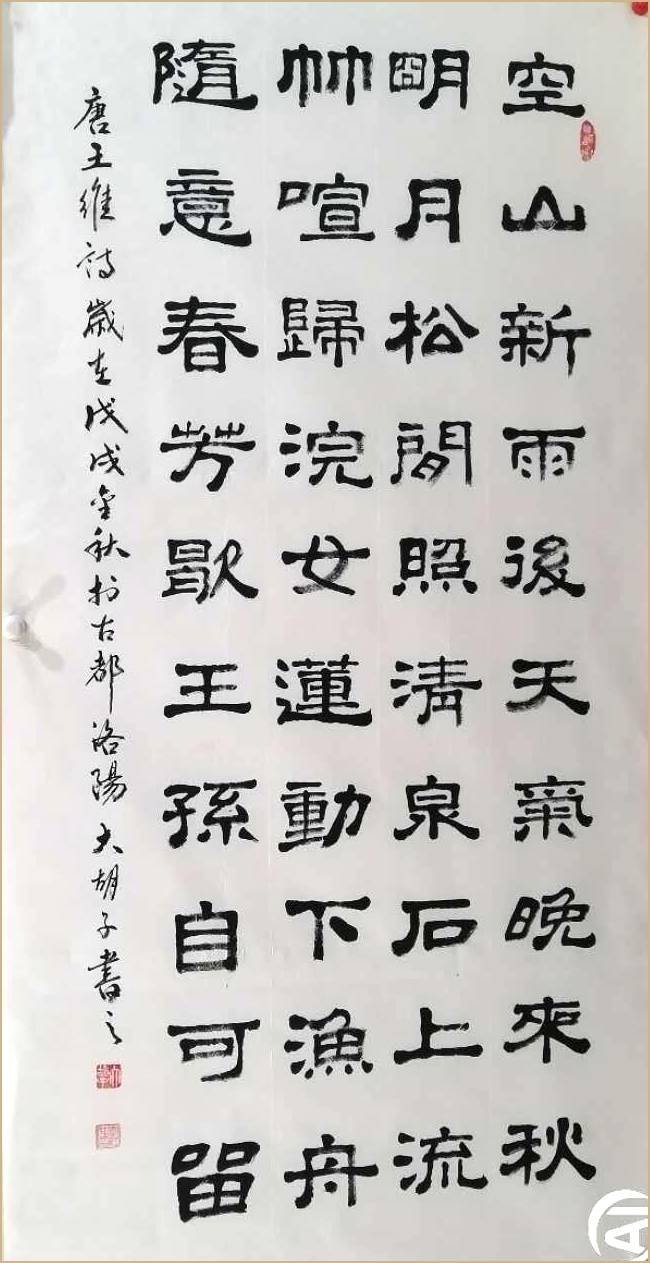 空山新雨後天氣晚來秋
明月松間照清泉石上流
竹喧歸浣女蓮動下漁舟
隨意春芳歇王孫自可留
唐王維詩歲在戊戌金秋於古都洛陽大胡子書之